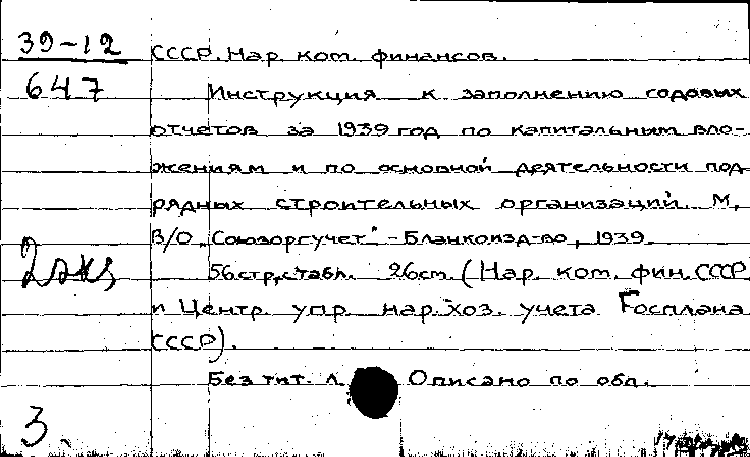 39-12
647
СССР. Нар. ком. финансов.
Инструкция к заполнению годовых
отчетов за 1939 год по капитальным вло-
жениям и по основной деятельности под
рядных строительных организаций. М,
В/О „Союзоргучет" - Бланкоизд-во, 1939.
2 экз
56 стр, с табл. 26 cm. (Нар. ком. фин. СССР
и Центр. упр. нар. хоз. учета Госплана
СССР).
Без тит. л. Описано по обл.
3.